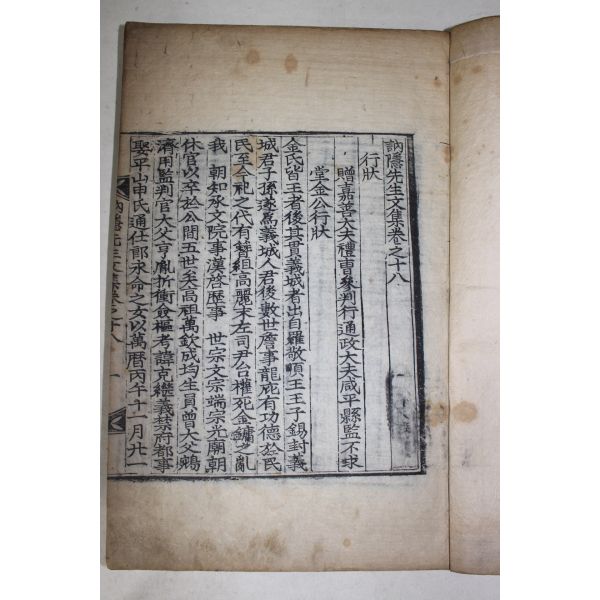 訥隱先生文集卷之十八
行狀
贈嘉善大夫禮曹參判行通政大夫咸平縣監不求
堂金公行狀
金氏皆王者後其貫義城者出自羅敬順王王子錫封義
城君子孫遂爲義城人君後數世詹事龍庇有功德於民
民至今祀之代有簪組高麗末左司尹台權死金鏞之亂
我 朝知承文院事漢啓歷事 世宗文宗端宗光廟朝
休官以卒於公間五世矣高祖萬欽成均生員曾大父
濟用監判官大父亨胤折衝僉樞考諱克繼義禁府都事
娶平山申氏通仕郞永命之女以萬曆丙午十一月廿一
訥隱先生文集卷之十八 一